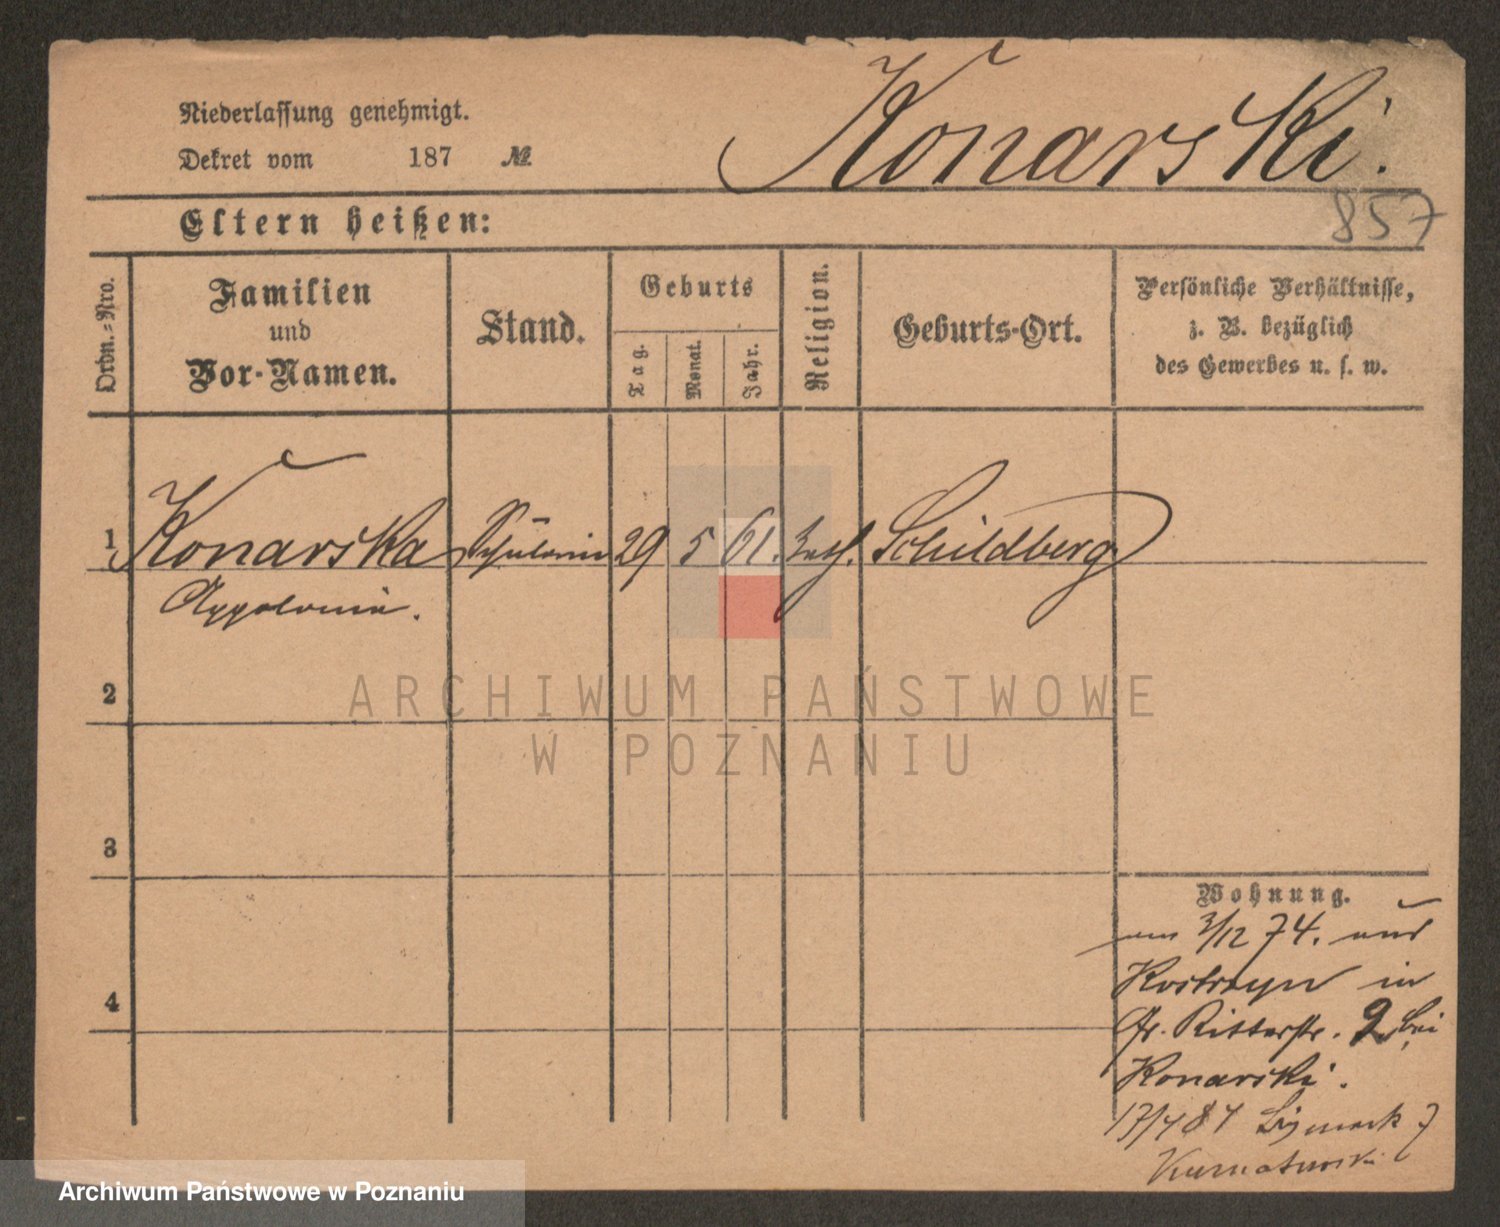 Niederlassung genehmigt.
Dekret vom 187 №
Konarski.
857
Eltern heißen:
Ordn.-Nro.
Familien
und
Vor-Namen.
Stand.
Geburts
Tag.
Monat.
Jahr.
Religion.
Geburts-Ort.
Persönliche Verhältnisse,
z. B. bezüglich
des Gewerbes u. s. w.
1 Konarska Schülerin 29 5 61. kath. Schildberg
Appolonia.
2
3
4
Wohnung.
am 3/12 74. aus
Kostrzyn in
Gr. Ritterstr. 2 bei
Konarski.
Bismark 7
ARCHIWUM PAŃSTWOWE
W POZNANIU
Archiwum Państwowe w Poznaniu